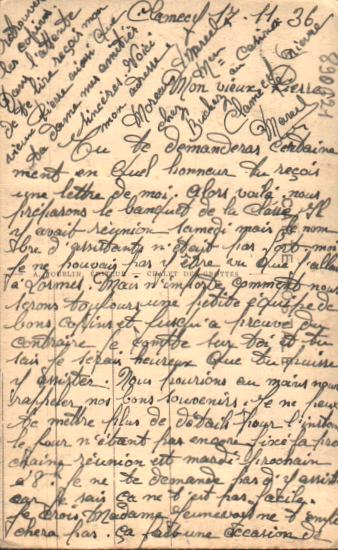 Clamecy 17-11 36
Mon vieux Pierre
Tu te demanderas certaine
ment en quel honneur tu reçois
une lettre de moi. Alors voilà nous
préparons le banquet de la classe. Il
y avait réunion samedi mais le nom
bre d'assistants n'était pas fort. moi
je ne pouvais pas y être vu que j'allai
à Lormes. Mais n'importe comment nous
serons toujours une petite équipe de
bons copins et jusqu'à preuve du
contraire je compte sur toi et tu
sais je serais heureux que tu puisse
y assister. Nous pourions au moins nous
rappeler nos bons souvenirs. Je ne peux
te mettre plus de détails pour l'instant
le jour n'étant pas encore fixé la pro
chaine réunion est mardi prochain
à 8h je ne te demande pas d'y assister
car je sais ça ne t'est pas facile.
Je crois Madame ne t'empê
chera pas. ça fait une occasion de
retrouver
les copins
Dans l'attente
de te lire reçois mon
vieux Pierre ainsi que
ta Dame mes amitiés
sincères. Voici
mon adresse
Moreau Marcel
chez Mr
au Casino
Clamecy Nièvre
Marcel
CHALET DES GROTTES